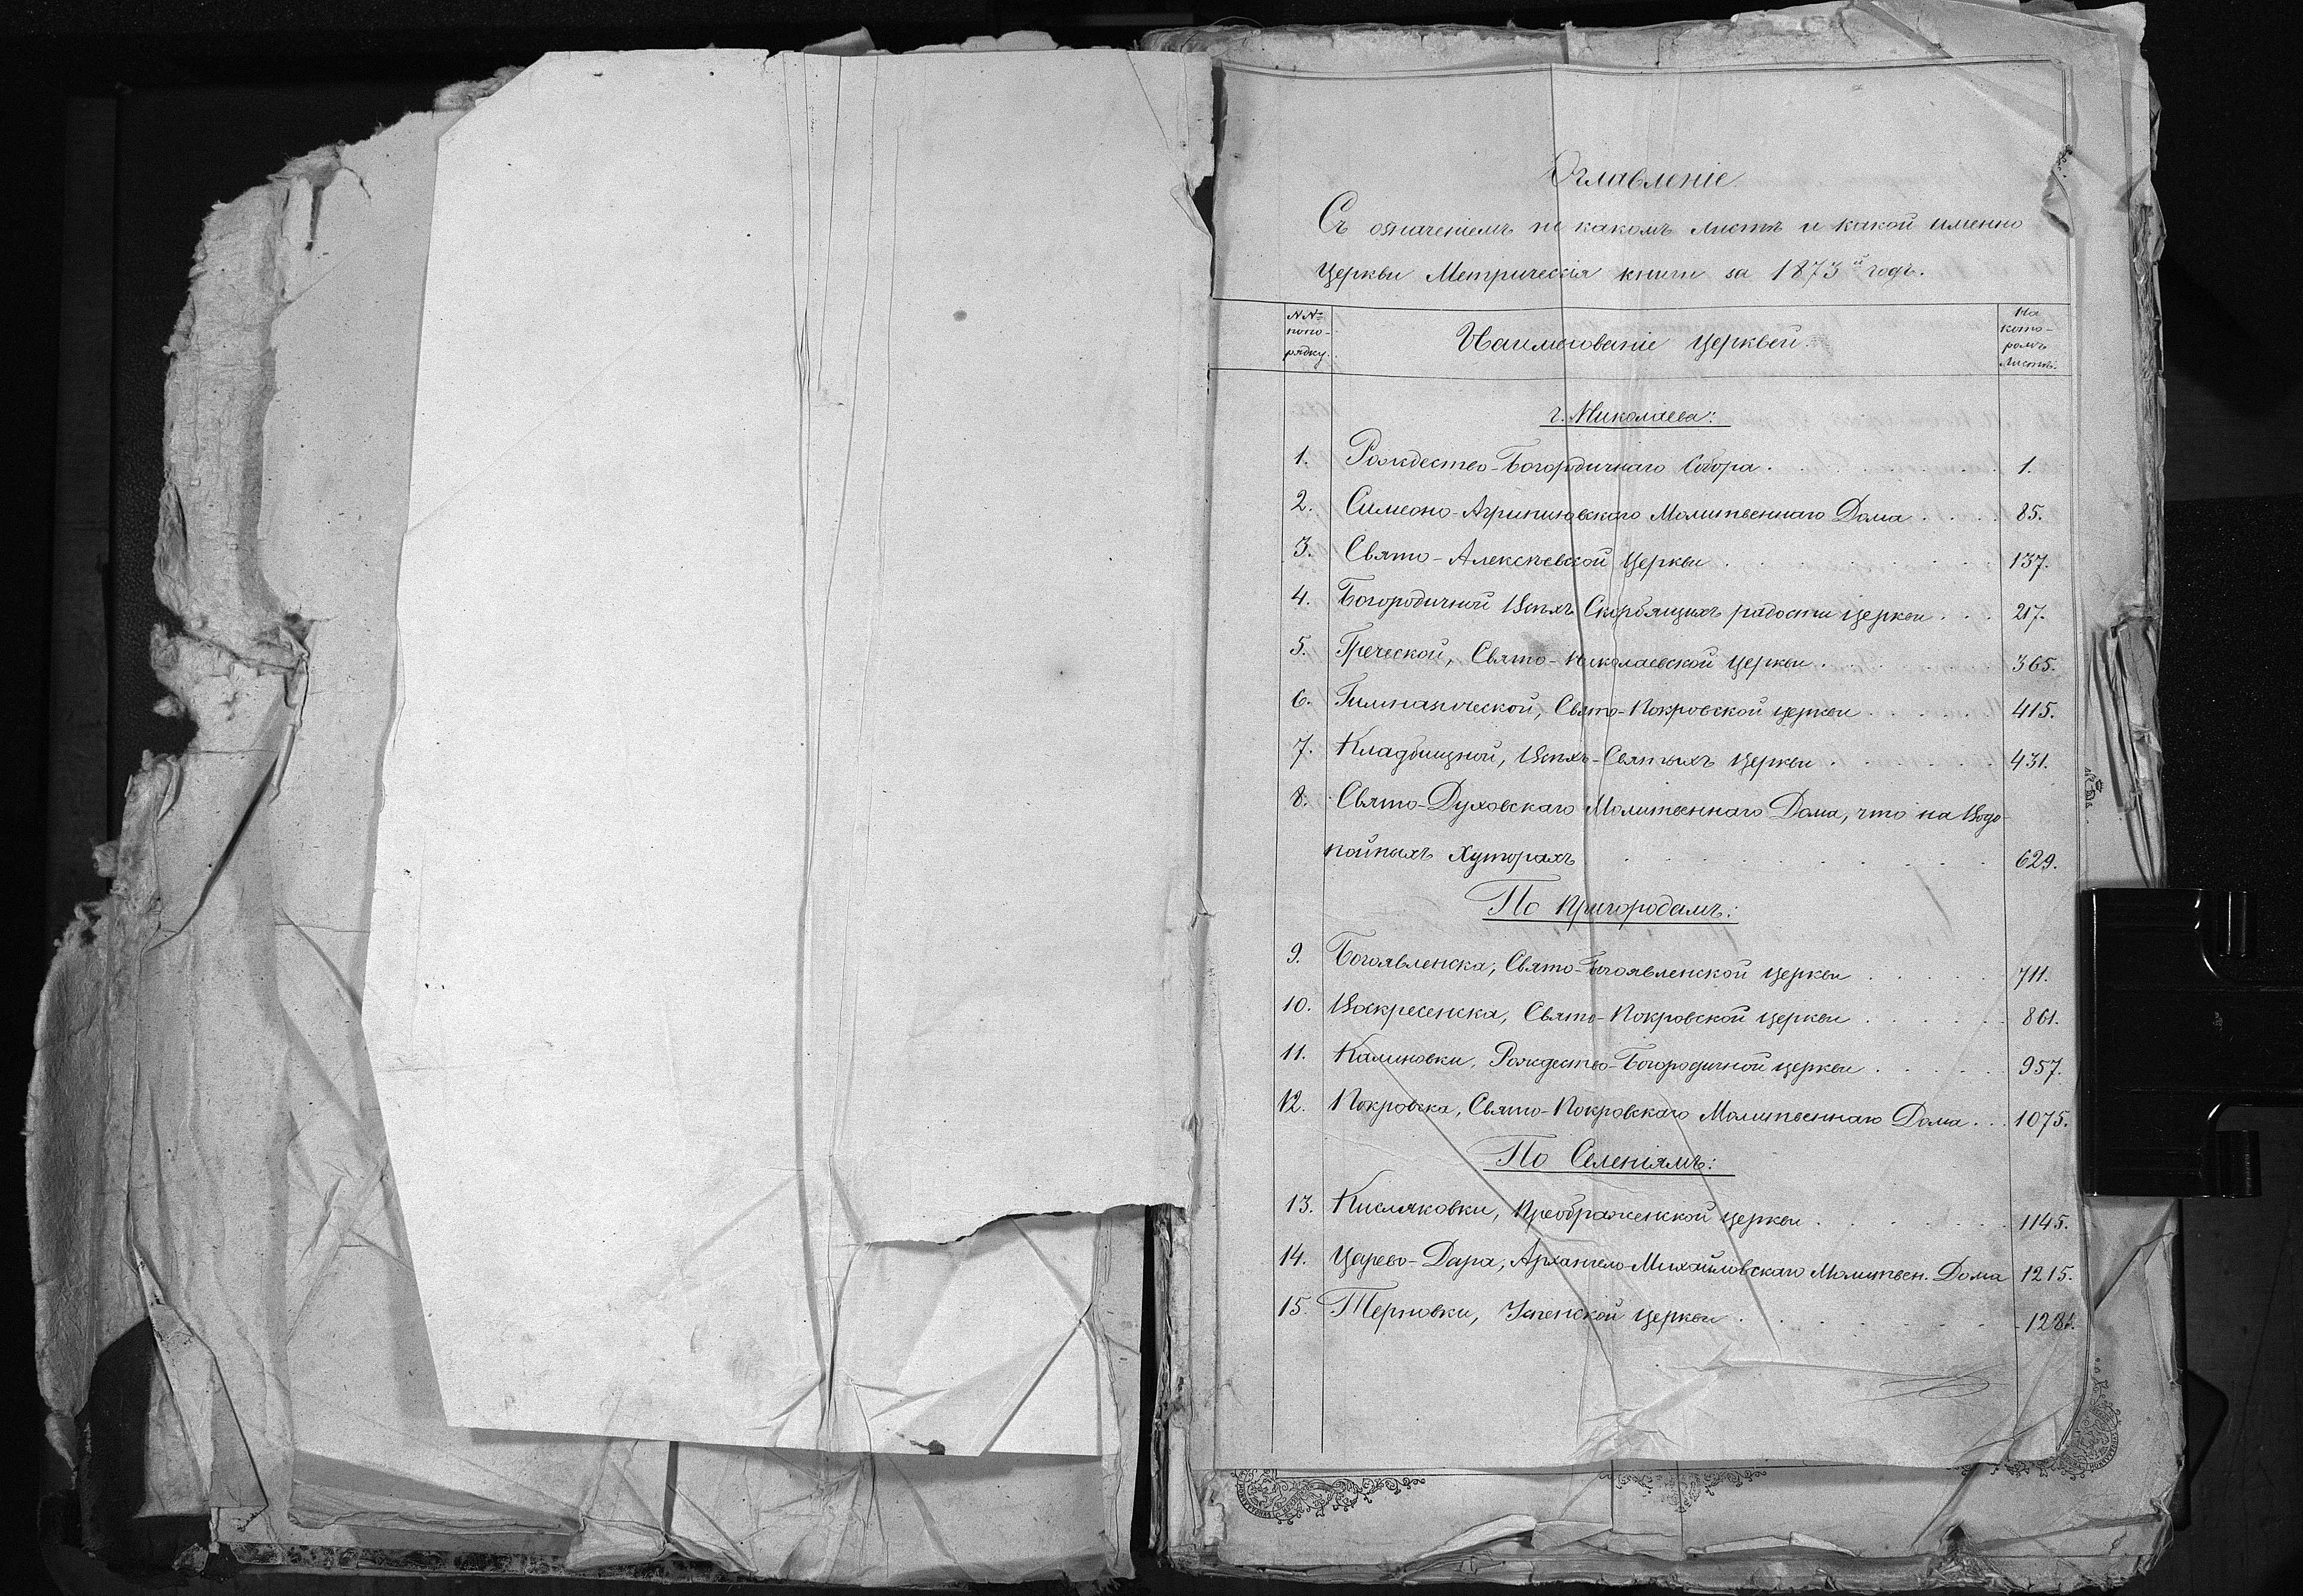 Оглавленіе
Съ означеніемъ на какомъ листѣ и какой именно
Церкви Метрическія книги за 1873й годъ.
№№ попо-рядку.
Наименованіе Церквей.
На кото-ромъ Листѣ.
г. Николаева:
1. Рождество-Богородичнаго Собора . . . 1.
2. Симеоно-Агрипиновскаго Молитвеннаго Дома . . . 85.
3. Свято-Алексѣевской Церкви . . . 137.
4. Богородичной Всѣхъ Скорбящихъ радости церкви . . . 217.
5. Греческой, Свято-Николаевской Церкви . . . 365.
6. Гимназической, Свято-Покровской церкви . . . 415.
7. Кладбищной, Всѣхъ-Святыхъ Церкви . . . 431.
8. Свято-Духовскаго Молитвеннаго Дома, что на Водо-
пойныхъ Хуторахъ . . . 629.
По Пригородамъ:
9. Богоявленска, Свято-Богоявленской церкви . . . 711.
10. Воскресенска, Свято-Покровской церкви . . . 861.
11. Калиновки, Рождество-Богородичной церкви . . . 957.
12. Покровска, Свято-Покровскаго Молитвеннаго Дома . . . 1075.
По Селеніямъ:
13. Кисляковки, Преображенской церкви . . . 1145.
14. Царево-Дара, Архангело-Михайловскаго Молитвен. Дома 1215.
15. Терновки, Успенской церкви . . .